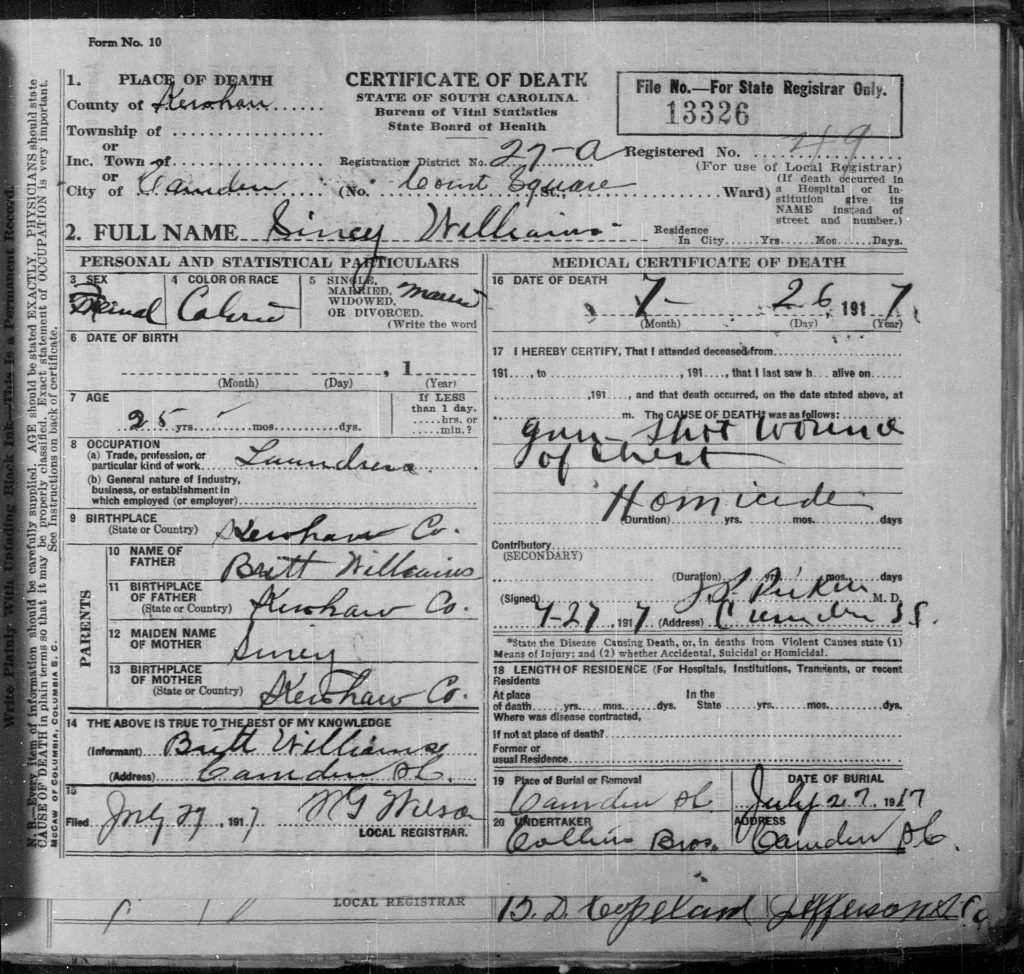 Form No. 10
1. PLACE OF DEATH
County of Kershaw
Township of
or
Inc. Town of
or
City of Camden
CERTIFICATE OF DEATH
STATE OF SOUTH CAROLINA.
Bureau of Vital Statistics
State Board of Health
File No.—For State Registrar Only.
13326
Registration District No. 27-A
Registered No. 49
(For use of Local Registrar)
(No. Court Square St., Ward)
(If death occurred in
a Hospital or In-
stitution give its
NAME instead of
street and number.)
2. FULL NAME Siney Williams
Residence
In City Yrs. Mos. Days.
PERSONAL AND STATISTICAL PARTICULARS
3 SEX
4 COLOR OR RACE
5 SINGLE, MARRIED, WIDOWED, OR DIVORCED.
(Write the word
6 DATE OF BIRTH
, 1
(Month) (Day) (Year)
7 AGE
25 yrs. mos. dys.
If LESS
than 1 day.
hrs. or
min.?
8 OCCUPATION
(a) Trade, profession, or
particular kind of work Laundress
(b) General nature of Industry,
business, or establishment in
which employed (or employer)
9 BIRTHPLACE
(State or Country) Kershaw Co.
PARENTS
10 NAME OF
FATHER Britt Williams
11 BIRTHPLACE
OF FATHER
(State or Country) Kershaw Co.
12 MAIDEN NAME
OF MOTHER Siney
13 BIRTHPLACE
OF MOTHER
(State or Country) Kershaw Co.
14 THE ABOVE IS TRUE TO THE BEST OF MY KNOWLEDGE
(Informant) Britt Williams
(Address) Camden S.C.
15
Filed July 27, 1917 W G Wilson
LOCAL REGISTRAR.
MEDICAL CERTIFICATE OF DEATH
16 DATE OF DEATH
7- 26, 1917
(Month) (Day) (Year)
17 I HEREBY CERTIFY, That I attended deceased from
191 , to , 191 , that I last saw h alive on
,191 , and that death occurred, on the date stated above, at
m. The CAUSE OF DEATH* was as follows:
gun-shot wound
of chest
Homicide
(Duration) yrs. mos. days
Contributory
(SECONDARY)
(Duration) yrs. mos. days
(Signed) M. D.
7-27, 1917 (Address) Camden S.C.
*State the Disease Causing Death, or, in deaths from Violent Causes state (1)
Means of Injury: and (2) whether Accidental, Suicidal or Homicidal.
18 LENGTH OF RESIDENCE (For Hospitals, Institutions, Transients, or recent
Residents
At place In the
of death yrs. mos. dys. State yrs. mos. dys.
Where was disease contracted,
If not at place of death?
Former or
usual Residence
19 Place of Burial or Removal DATE OF BURIAL
Camden S.C. July 27, 1917
20 UNDERTAKER ADDRESS
Collins Bros. Camden S.C.
LOCAL REGISTRAR
B. D. Copeland Jefferson S.C.
Write Plainly With Unfading Black Ink—This is a Permanent Record.
N. B.—Every item of information should be carefully supplied. AGE should be stated EXACTLY. PHYSICIANS should state
CAUSE OF DEATH in plain terms so that it may be properly classified. Exact statement of OCCUPATION is very important.
See Instructions on back of certificate.
McCAW OF COLUMBIA, COLUMBIA S. C.